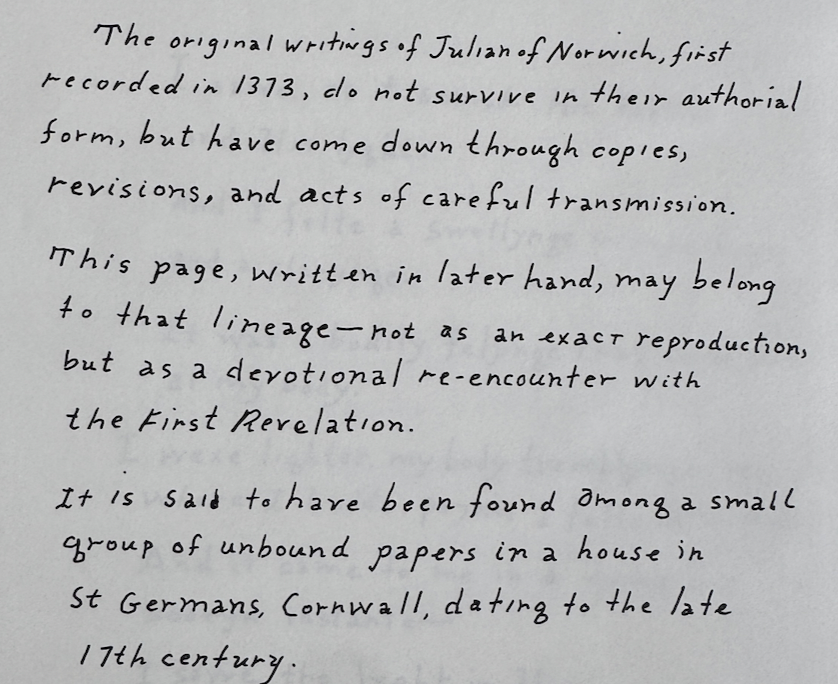 The original writings of Julian of Norwich, first
recorded in 1373, do not survive in their authorial
form, but have come down through copies,
revisions, and acts of careful transmission.
This page, written in later hand, may belong
to that lineage—not as an exact reproduction,
but as a devotional re-encounter with
the First Revelation.
It is said to have been found among a small
group of unbound papers in a house in
St Germans, Cornwall, dating to the late
17th century.